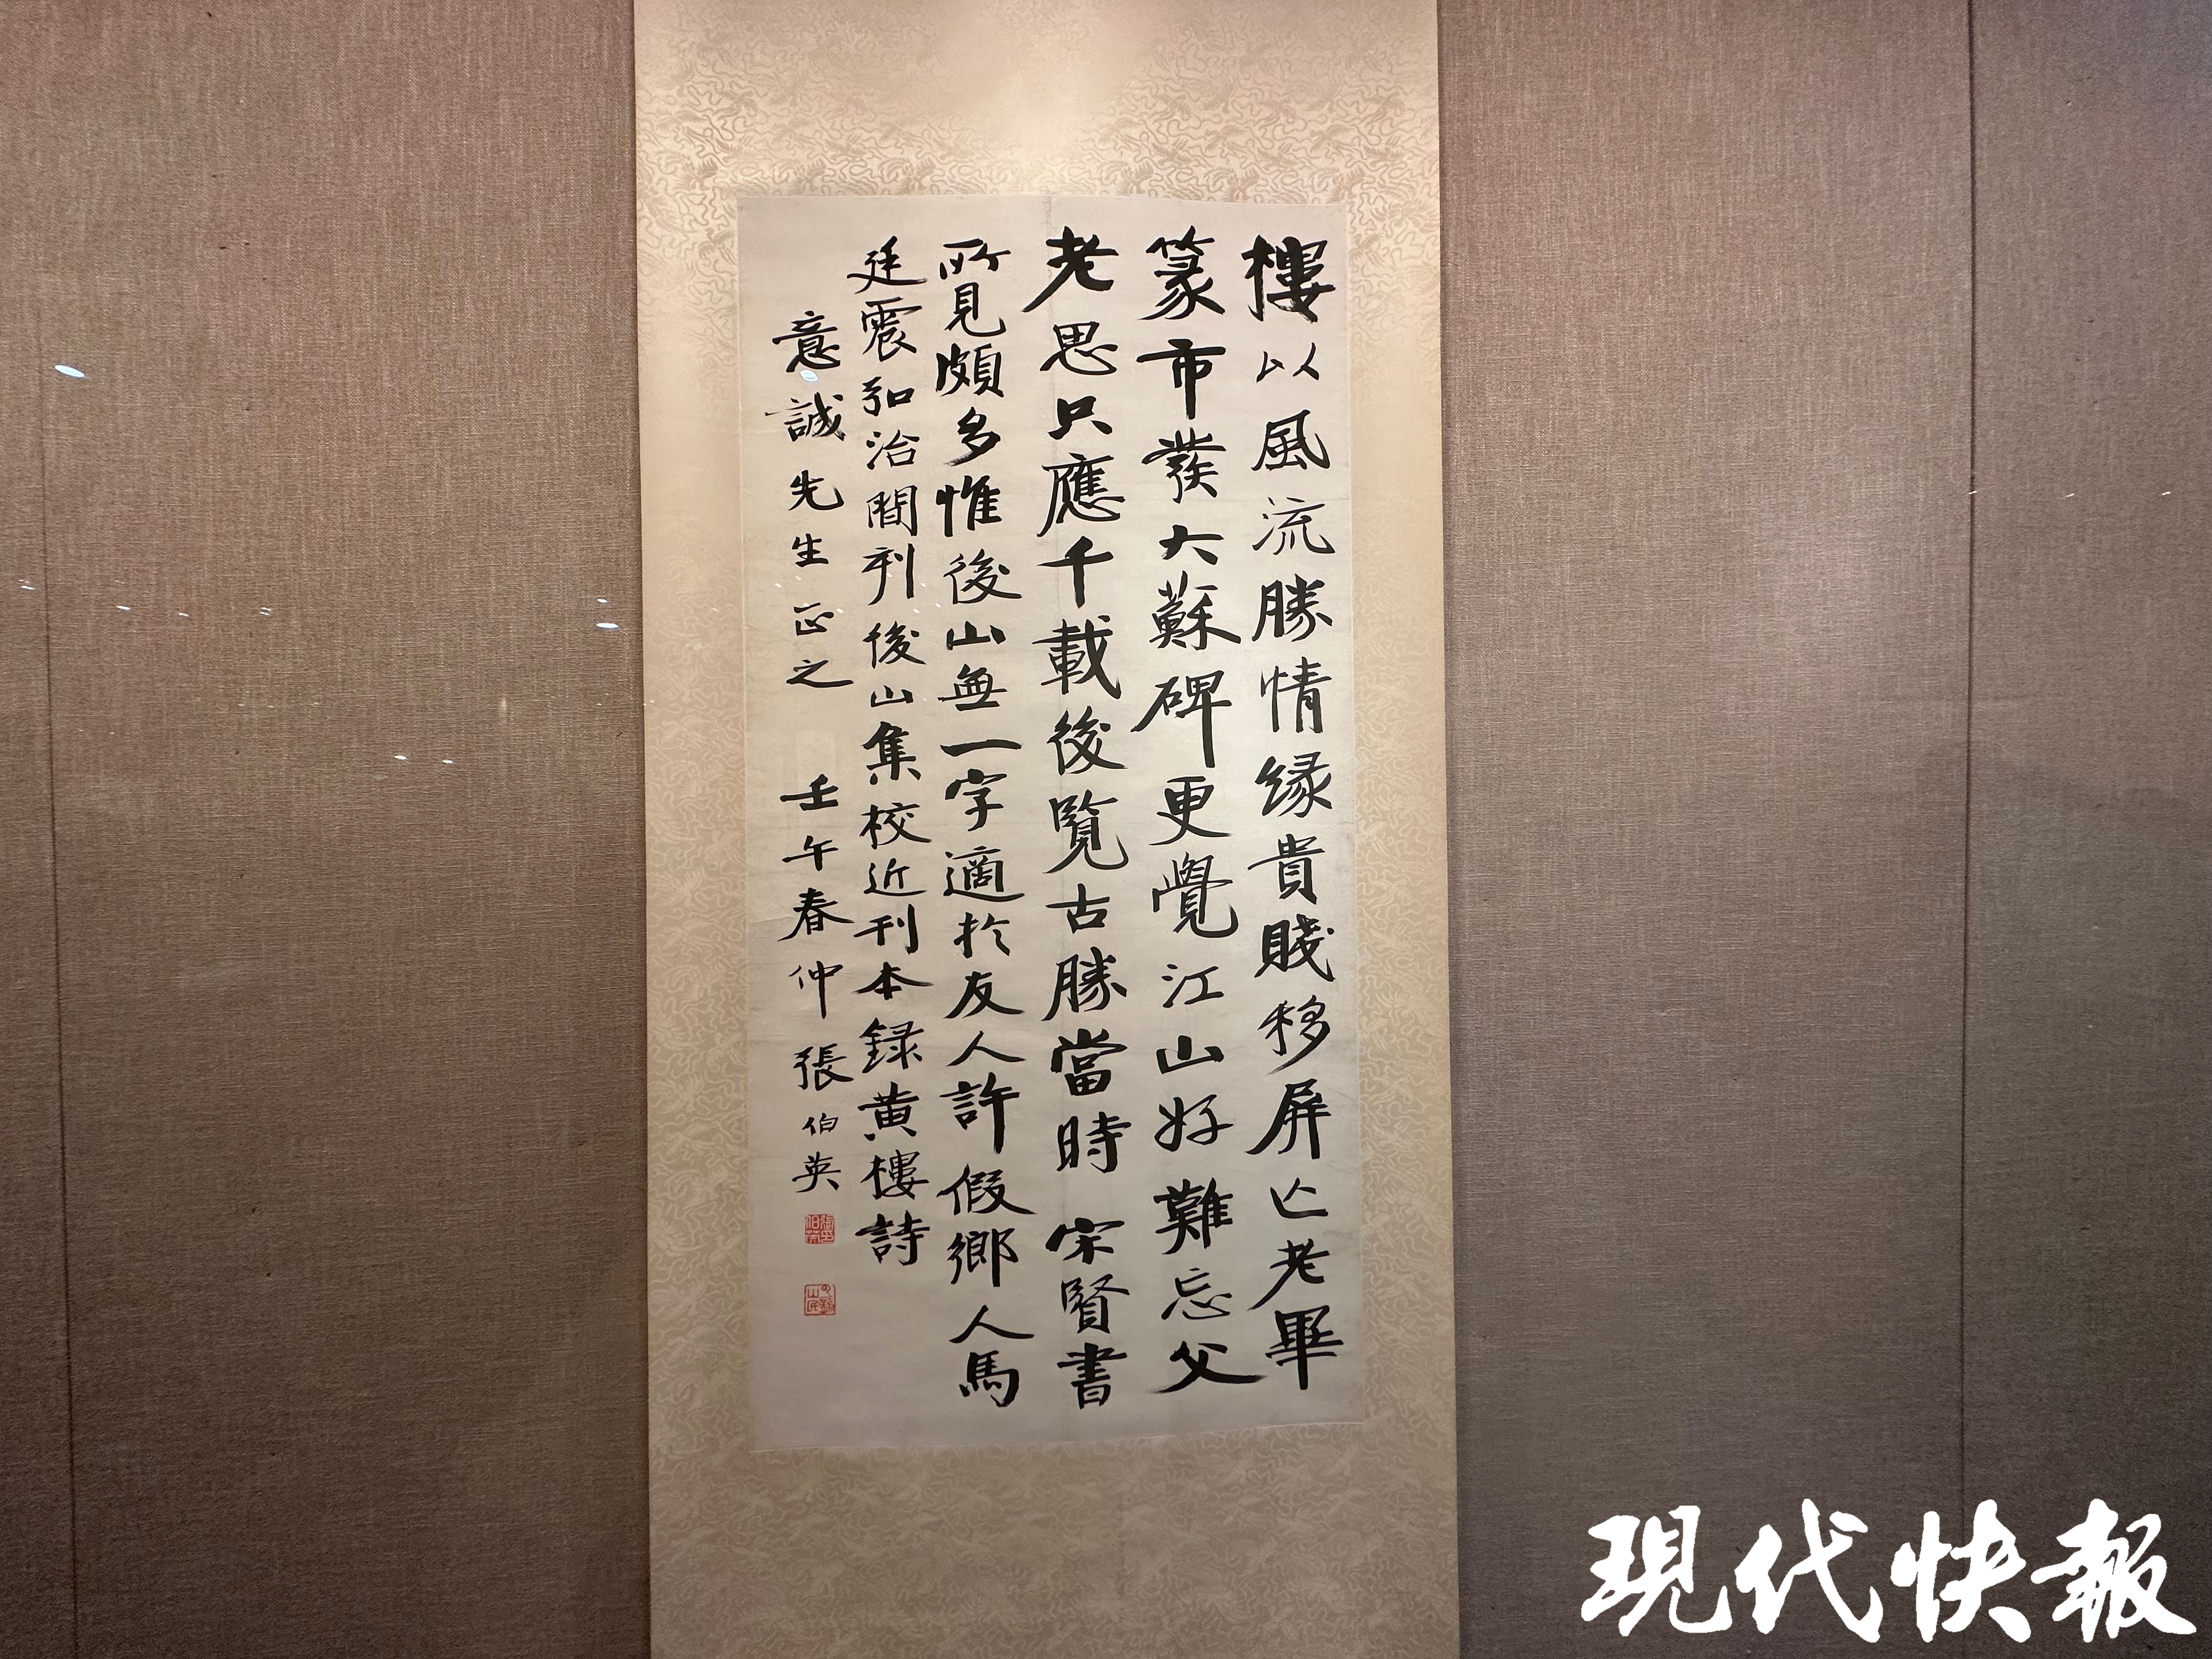 樓以風流勝情緣貴賤移屏亡老畢
篆市發大蘇碑更覺江山好難忘父
老思只應千載後覽古勝當時 宋賢書
所見頗多惟後山無一字適於友人許假鄉人馬
廷震弘治間刊後山集校近刊本録黄樓詩
意誠先生正之 壬午春仲 張伯英
現代快報